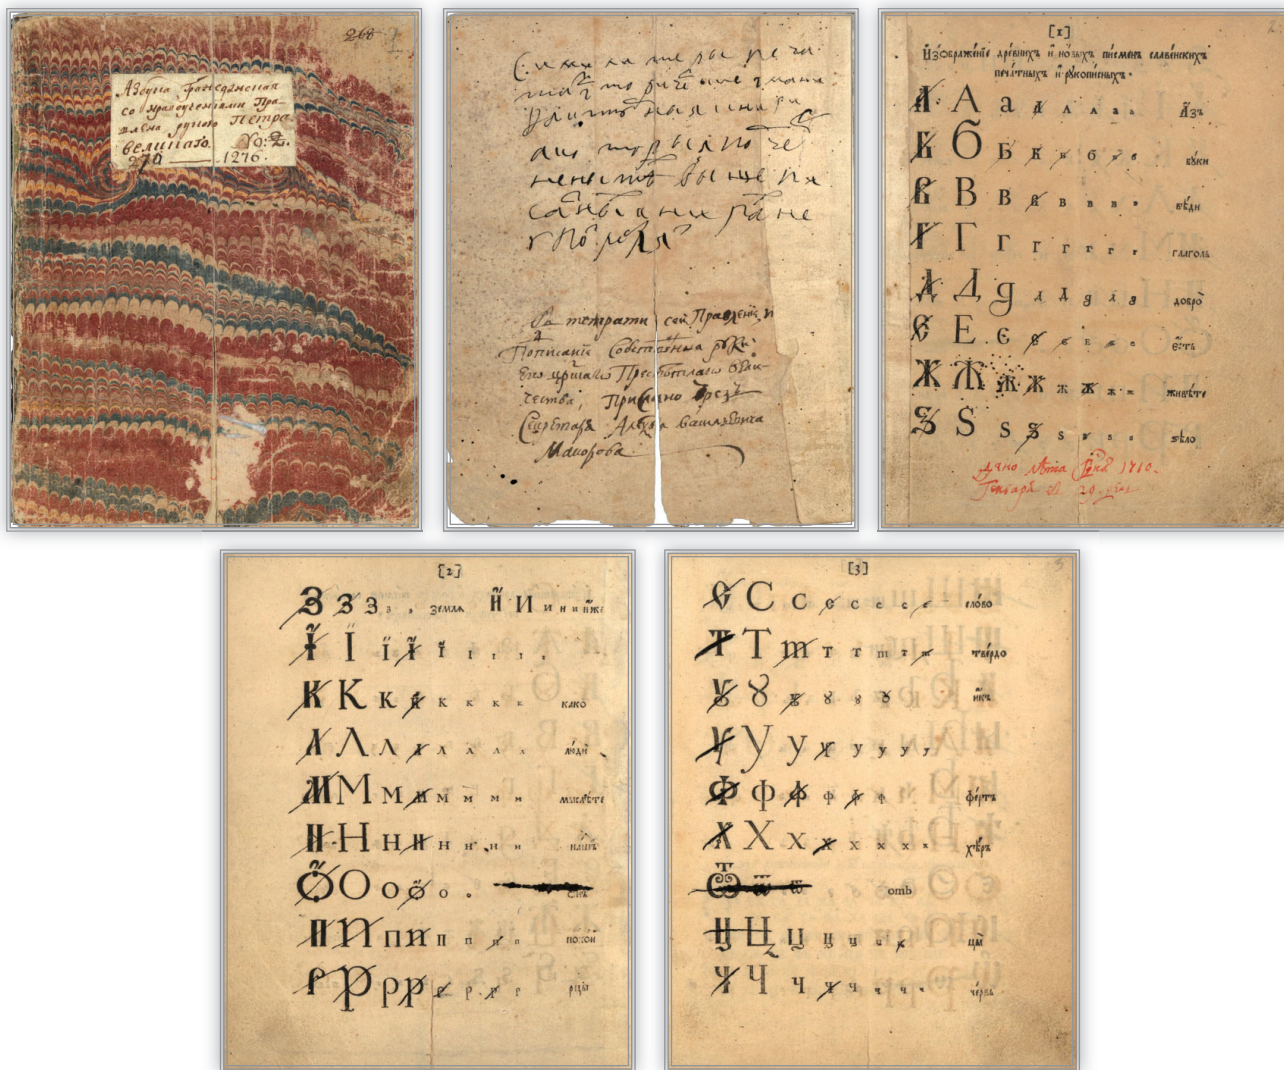 268
Азбука Гражданская
со Нравоученiами Пра-
влена рукою Петра
Великаго. No: 2.
270 — 1276.
Сими литеры печа
а которыя подче
ненны тѣ в вы ше пи
санных книгах не
На тетрати сей Правленiе, и
Пописанiе Собственныя руки
Его Пресвѣтлаго Вели-
чества, Прислано чрезъ
Секретаря Алексѣя Василевича
Макарова
[1]
И҆зображе́нїе дре́внихъ и҆ но́выхъ пи́сменъ славе́нскихъ
печа́тныхъ и҆ рукопи́сныхъ.
А А а а а а а а А҆зъ
Б Б Б Б Б б б б бу́ки
В В В В В В В В вѣ́ди
Г Г Г Г Г Г Г Г глаго́ль
Д Д д д д д д д добро̀
Е Е Є е е е е е е҆́сть
Ж Ж Ж Ж ж ж ж ж живѣ́те
Ѕ Ѕ ѕ ѕ ѕ ѕ ѕ ѕ ѕѣло̀
Дано лѣта 1710.
Генваря въ 29. день
[2]
З З З з з земля̀ И И и и и и҆́же
Ї Ї ї ї ї ї ї ї ї
К К к к к к к к ка́кѡ
Л Л л л л л л л лю́ди
М М м м м м м м мыслѣ́те
Н Н н н н н н н на́шъ
О О о о о о
П П п п п п п п поко́й
Р Р р р р р р р рцы̀
[3]
С С с с с с с с сло́во
Т Т т т т т т т тве́рдо
Ꙋ Ꙋ ꙋ ꙋ ꙋ ꙋ и҆́къ
У У у у у у у у
Ф Ф ф ф ф ф фе́ртъ
Х Х х х х х х х хѣ́ръ
Ѿ ѿ ѿ отъ
Ц Ц ц ц ц ц ц цы̀
Ч Ч ч ч ч ч ч ч че́рвь